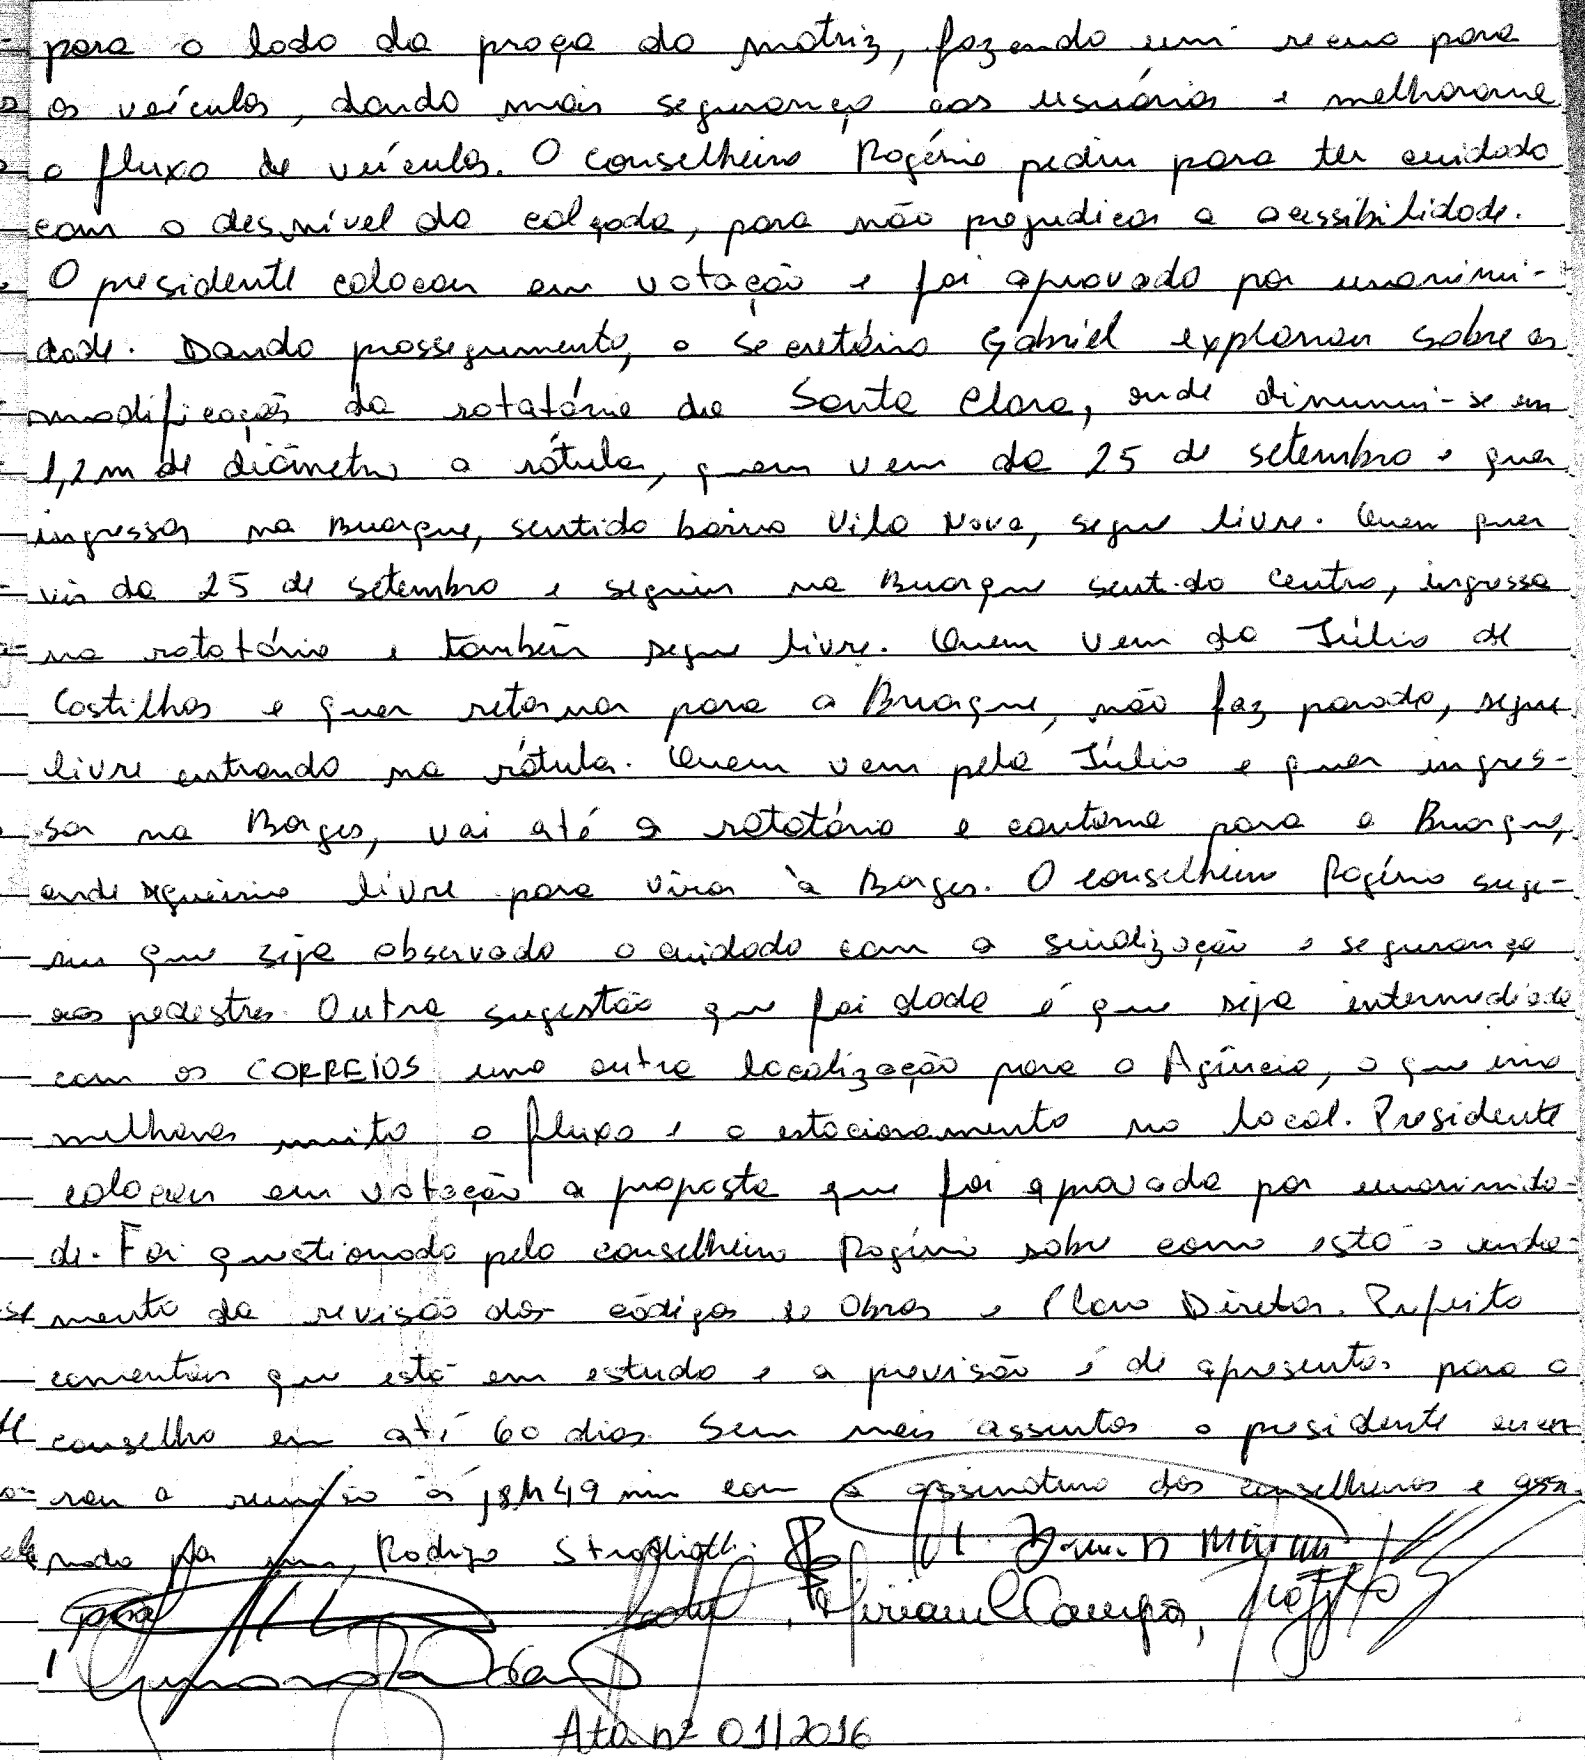 para o lado da praça da matriz, fazendo um recuo para
os veículos, dando mais segurança aos usuários e melhorame
o fluxo de veículos. O conselheiro Rogério pediu para ter cuidado
com o desnível da calçada, para não prejudicar a acessibilidade.
O presidente colocou em votação e foi aprovado por unanimi-
dade. Dando prosseguimento, o secretário Gabriel explanou sobre as
modificações da rotatória de Santa Clara, onde diminui-se em
1,2m de diâmetro a rótula, quem vem da 25 de setembro e quer
ingressar na Buarque, sentido bairro Vila Nova, segue livre. Quem quer
vir da 25 de setembro e seguir na Buarque sentido Centro, ingressa
na rotatória e também segue livre. Quem vem da Júlio de
Castilhos e quer retornar para a Buarque, não faz parada, segue
livre entrando na rótula. Quem vem pela Júlio e quer ingres-
sar na Borges, vai até a rotatória e contorna para a Buarque,
onde seguirá livre para virar à Borges. O conselheiro Rogério suge-
riu que seja observado o cuidado com a sinalização e segurança
aos pedestres. Outra sugestão que foi dada é que seja intermediado
com os CORREIOS uma outra localização para a Agência, o que iria
melhorar muito o fluxo e o estacionamento no local. Presidente
colocou em votação a proposta que foi aprovada por unanimida-
de. Foi questionado pelo conselheiro Rogério sobre como está o anda-
mento da revisão dos códigos de Obras e Plano Diretor. Prefeito
comentou que está em estudo e a previsão é de apresentar para o
conselho em até 60 dias. Sem mais assuntos o presidente encer
rou a reunião às 18h49min com a assinatura dos conselheiros e assi
nada por mim, Rodrigo
Miriam Campos,
Ata nº 01/2016